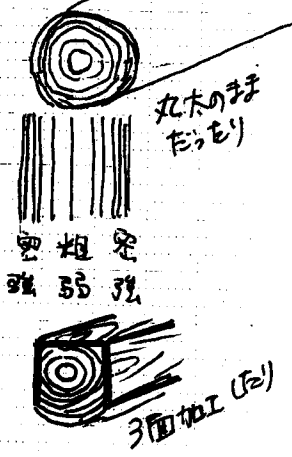 丸太のまま
だったり
密 粗 密
強 弱 強
3面加工したり